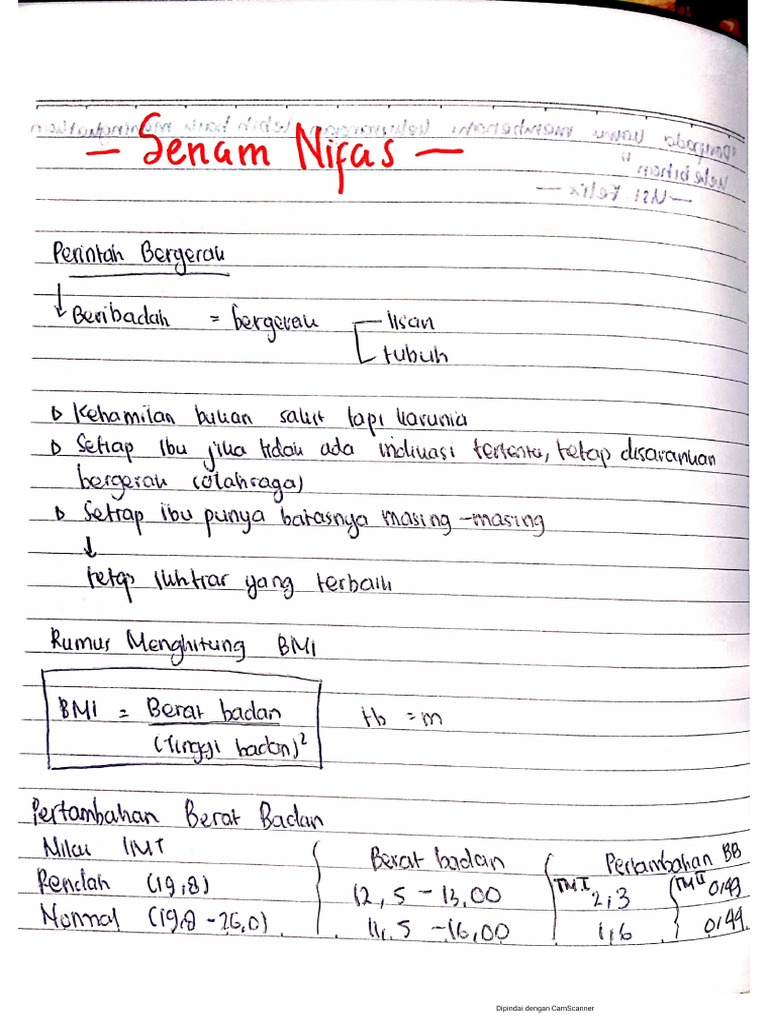 - Senam Nifas -
Perintah Bergerak
↓ Beribadah = bergerak lisan
tubuh
▷ Kehamilan bukan sakit tapi karunia
▷ Setiap ibu jika tidak ada indikasi tertentu, tetap disarankan
bergerak (olahraga)
▷ Setiap ibu punya batasnya masing-masing
↓
tetap ikhtiar yang terbaik
Rumus Menghitung BMI
BMI = Berat badan
(Tinggi badan)²
tb = m
Pertambahan Berat Badan
Nilai IMT Berat badan Pertambahan BB
Rendah (19,8) 12,5 - 13,00 TM I 2,3 TM II 0,49
Normal (19,8 - 26,0) 11,5 - 16,00 1,6 0,44
Dipindai dengan CamScanner